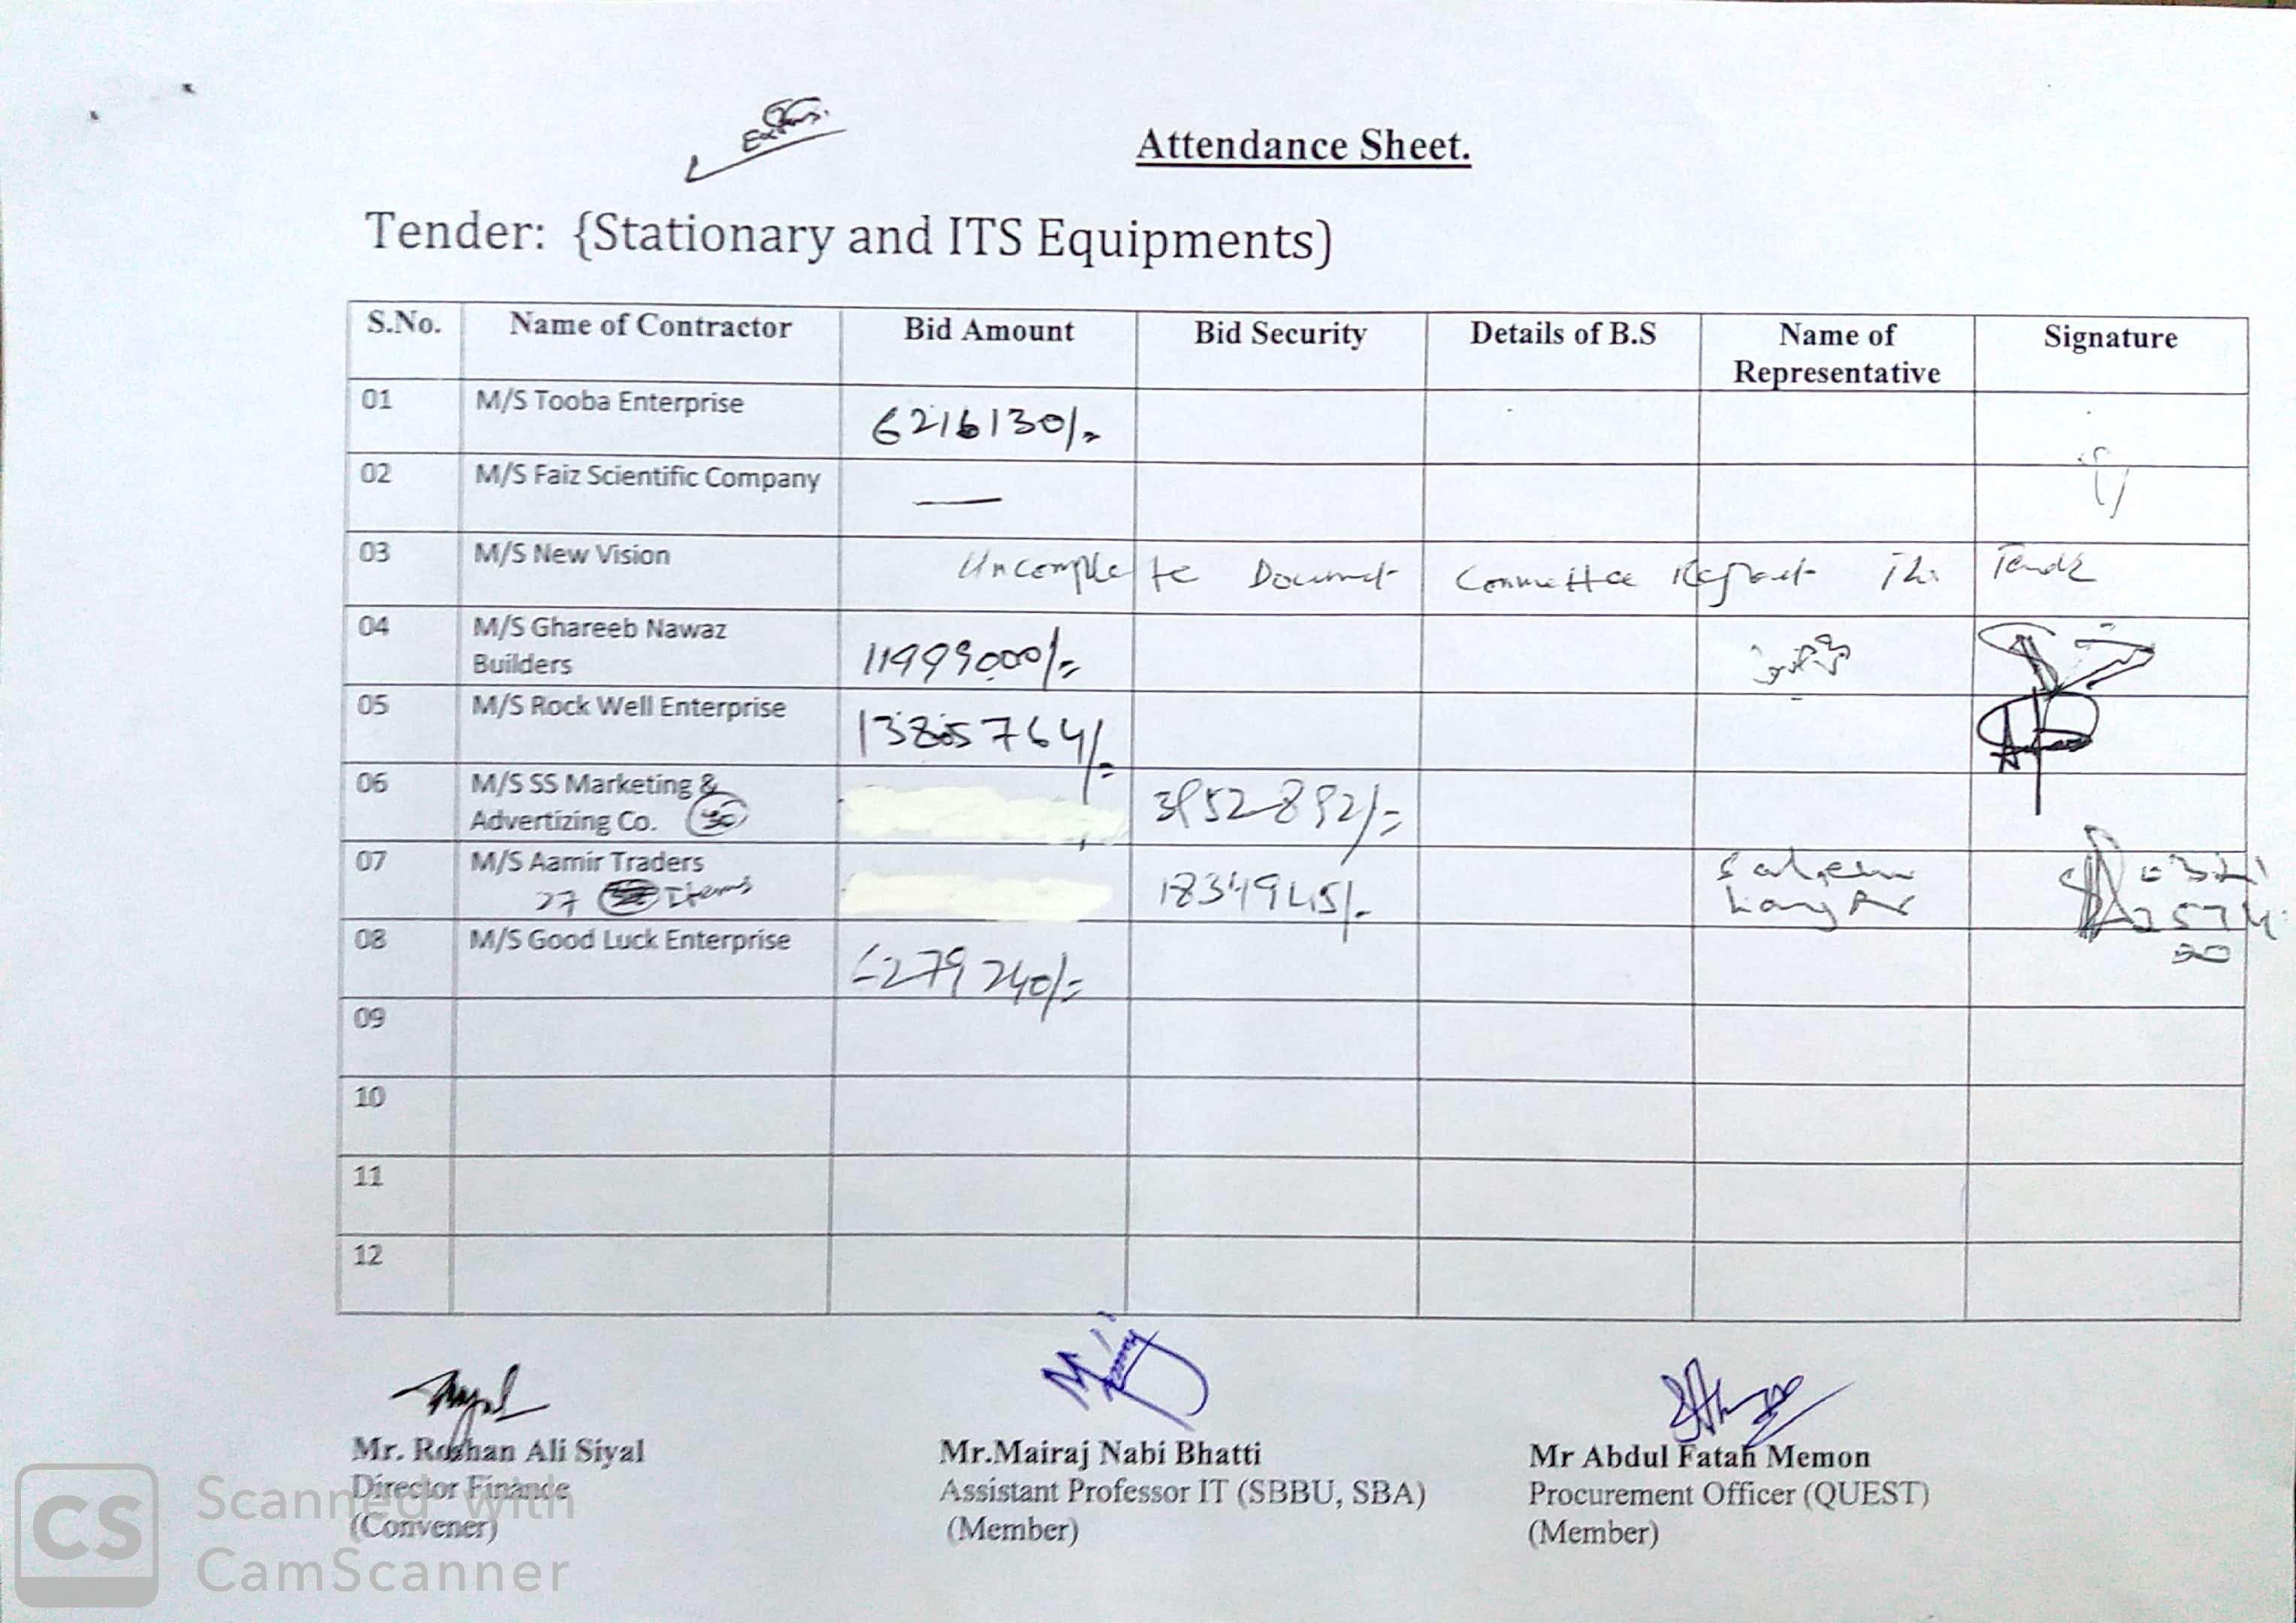 Attendance Sheet.
Tender: {Stationary and ITS Equipments)
S.No. Name of Contractor Bid Amount Bid Security Details of B.S Name of Representative Signature
01 M/S Tooba Enterprise 6216130/-
02 M/S Faiz Scientific Company —
03 M/S New Vision Uncomplete Document Committee Reject The Tender
04 M/S Ghareeb Nawaz Builders 11999000/=
05 M/S Rock Well Enterprise 13805764/=
06 M/S SS Marketing & Advertizing Co. 3952892/=
07 M/S Aamir Traders 1834945/-
27 Items
08 M/S Good Luck Enterprise 6279240/=
09
10
11
12
Mr. Roshan Ali Siyal
Director Finance
(Convener)
Mr.Mairaj Nabi Bhatti
Assistant Professor IT (SBBU, SBA)
(Member)
Mr Abdul Fatah Memon
Procurement Officer (QUEST)
(Member)
CS Scanned with
CamScanner